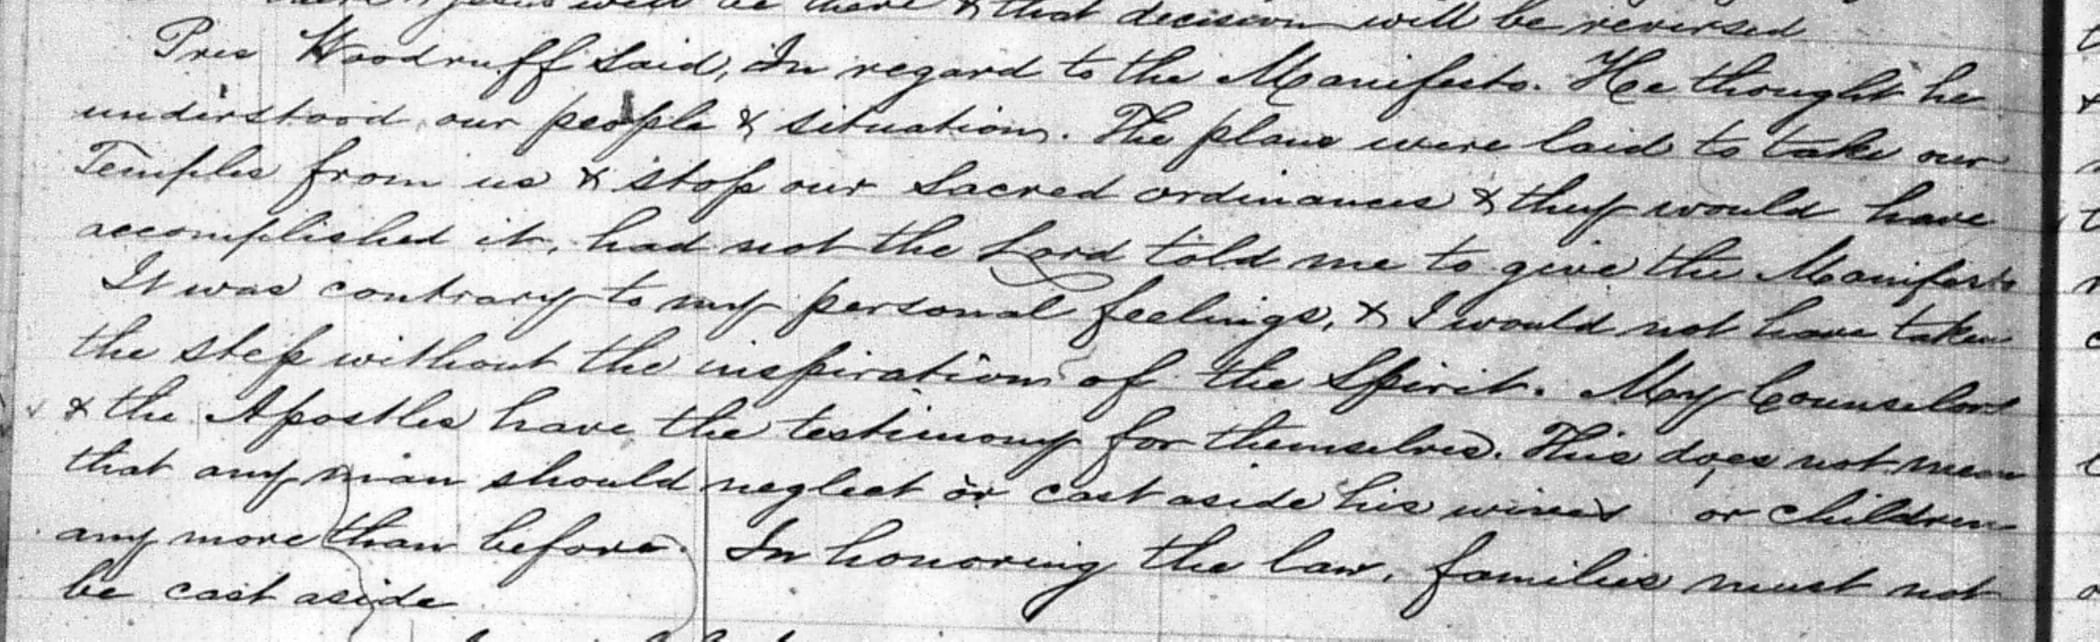 Jesus will be there & that decision will be reversed
Pres Woodruff said, In regard to the Manifesto. He thought he
understood our people & situation. The plans were laid to take our
Temples from us & stop our sacred ordinances & they would have
accomplished it, had not the Lord told me to give the Manifesto
It was contrary to my personal feelings, & I would not have taken
the step without the inspiration of the Spirit. My Counselors
& the Apostles have the testimony for themselves. This does not mean
that any man should neglect or cast aside his wives or children
any more than before. In honoring the law, families must not
be cast aside